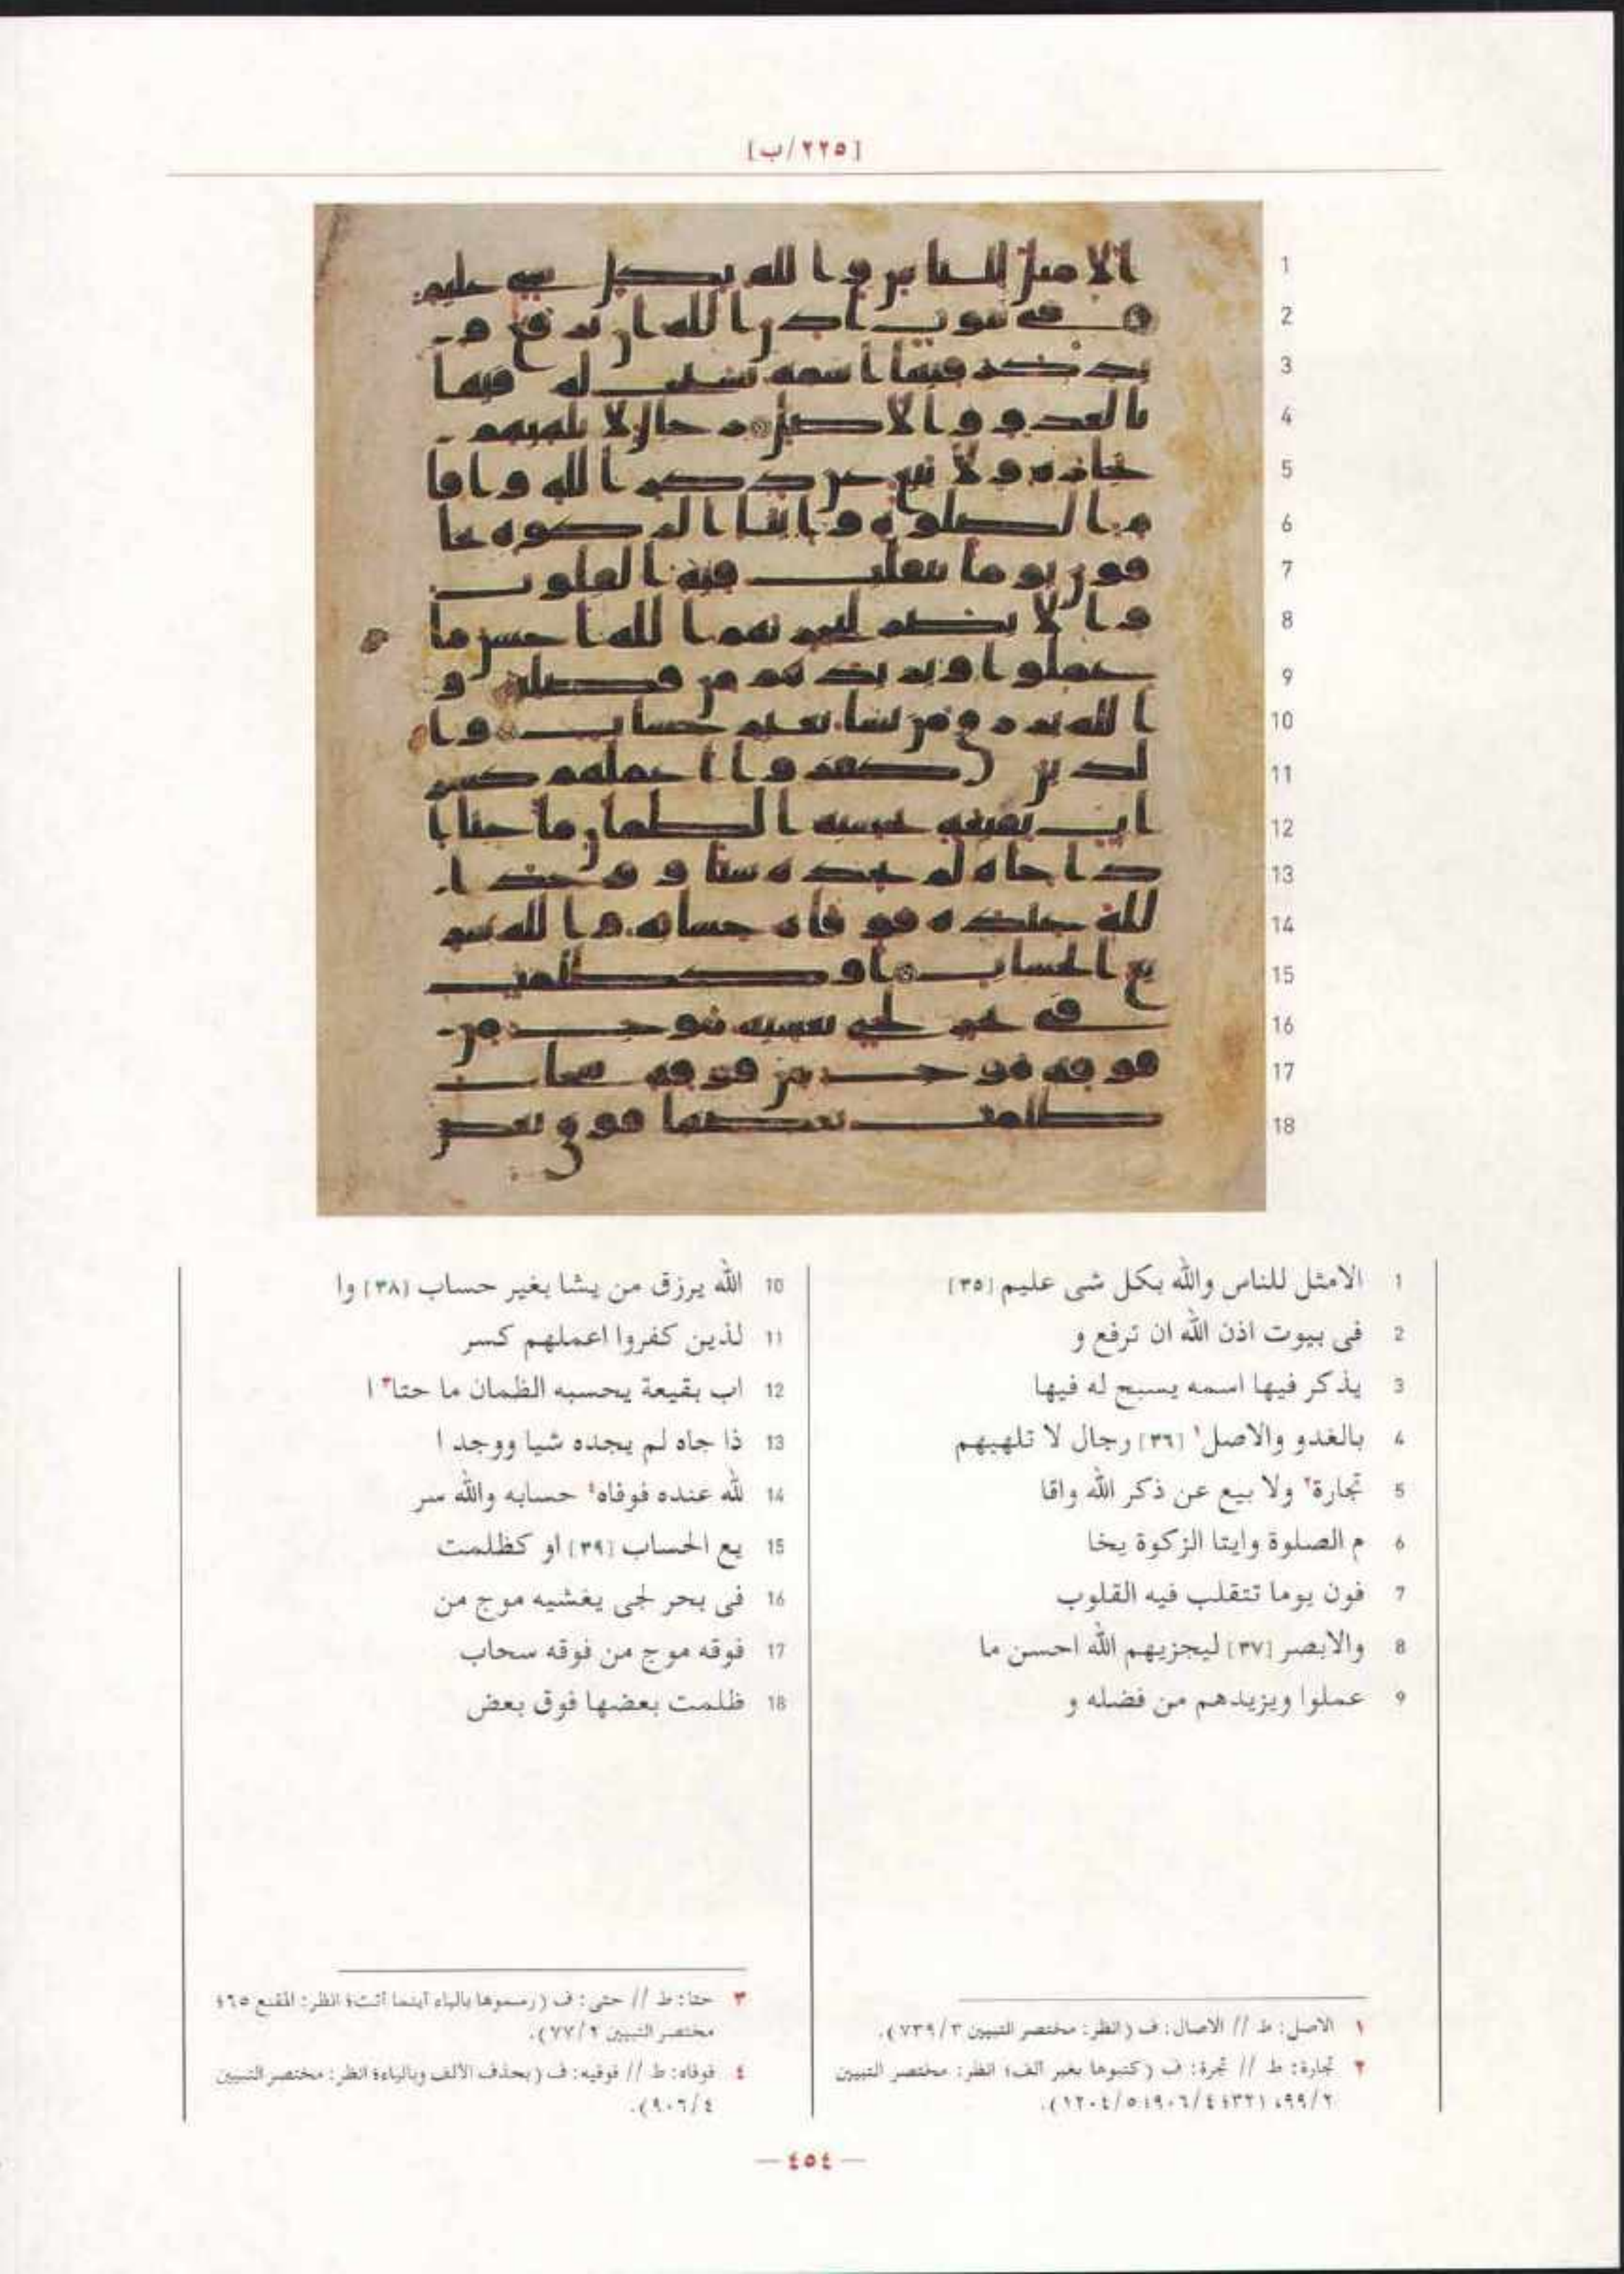 [٢٢٥/ب]
1 الامثل للناس والله بكل شى عليم [٣٥]
2 فى بيوت اذن الله ان ترفع و
3 يذكر فيها اسمه يسبح له فيها
4 بالغدو والاصل١ [٣٦] رجال لا تلهيهم
5 تجارة٢ ولا بيع عن ذكر الله واقا
6 م الصلوة وايتا الزكوة يخا
7 فون يوما تتقلب فيه القلوب
8 والابصر [٣٧] ليجزيهم الله احسن ما
9 عملوا ويزيدهم من فضله و
10 الله يرزق من يشا بغير حساب [٣٨] وا
11 لذين كفروا اعملهم كسر
12 اب بقيعة يحسبه الظمان ما حتا٣ ا
13 ذا جاه لم يجده شيا ووجد ا
14 لله عنده فوفاه٤ حسابه والله سر
15 يع الحساب [٣٩] او كظلمت
16 فى بحر لجى يغشيه موج من
17 فوقه موج من فوقه سحاب
18 ظلمت بعضها فوق بعض
١ الاصل: ط // الاصال: ف (انظر: مختصر التبيين ٧٣٩/٣).
٢ تجارة: ط // تجرة: ف (كتبوها بغير الف؛ انظر: مختصر التبيين
٩٩/٢، ١٣٢؛ ٩٠٦/٤؛ ١٢٠٤/٥).
٣ حتا: ط // حتى: ف (رسموها بالياء اينما اتت؛ انظر: المقنع ٦٥؛
مختصر التبيين ٧٧/٢).
٤ فوفاه: ط // فوفيه: ف (بحذف الألف وبالياء؛ انظر: مختصر التبيين
٩٠٦/٤).
— ٤٥٤ —